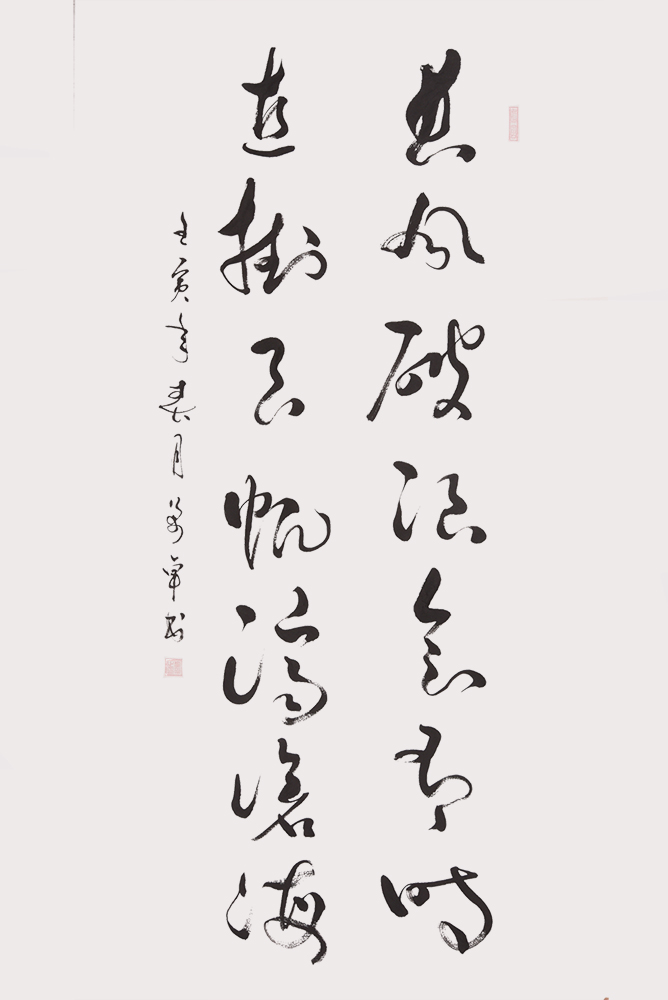 長風破浪會有時
直掛雲帆濟滄海
壬寅年春月